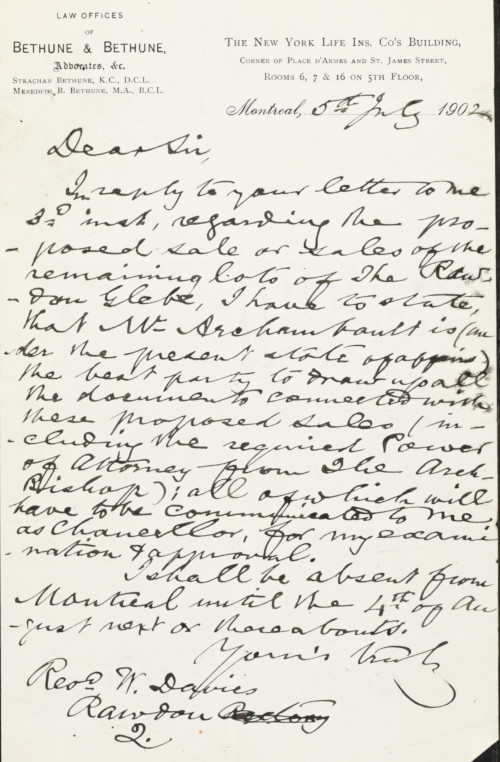 LAW OFFICES
OF
BETHUNE & BETHUNE,
Advocates, &c.
STRACHAN BETHUNE, K.C., D.C.L.
MEREDITH B. BETHUNE, M.A., B.C.L.
THE NEW YORK LIFE INS. CO'S BUILDING,
CORNER OF PLACE D'ARMES AND ST. JAMES STREET,
ROOMS 6, 7 & 16 ON 5TH FLOOR,
Montreal, 5th July 1902
Dear Sir,
In reply to your letter to me
3rd inst, regarding the pro-
-posed sale or sales of the
remaining lots of The Raw-
-don Glebe, I have to state,
that Mr Archambault is (un
-der the present state of affairs)
the best party to draw up all
the documents connected with
these proposed sales (in-
-cluding the required Power
of Attorney from The Arch-
Bishop); all of which will
have to be communicated to me,
as Chancellor, for my exami
-nation & approval.
I shall be absent from
Montreal until the 4th of Au
-gust next or thereabouts.
Yours truly
Revd W. Davies
Rawdon Rectory
2.